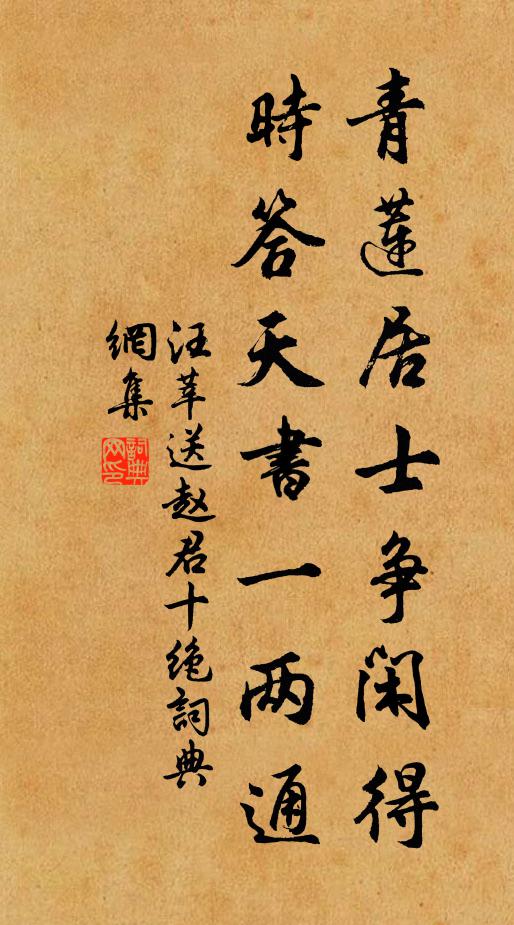 青莲居士争闲得
时答天书一两通
汪莘送赵君十绝词典
网集
词典
网印